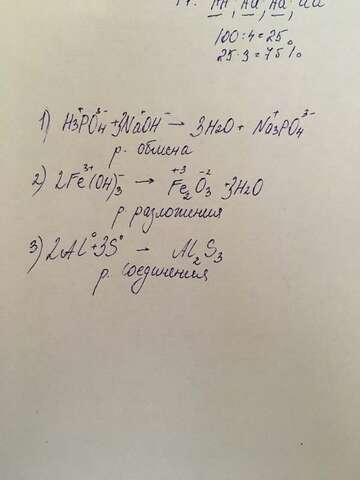 Аа, Аа, аа
100:4=25%
25·3=75%
1) H₃⁺PO₄³⁻+3Na⁺OH⁻ → 3H₂O + Na₃⁺PO₄³⁻
р. обмена
2) 2Fe³⁺(OH)₃⁻ → Fe₂⁺³O₃⁻² +3H₂O
р разложения
3) 2Al⁰+3S⁰ → Al₂S₃
р. соединения